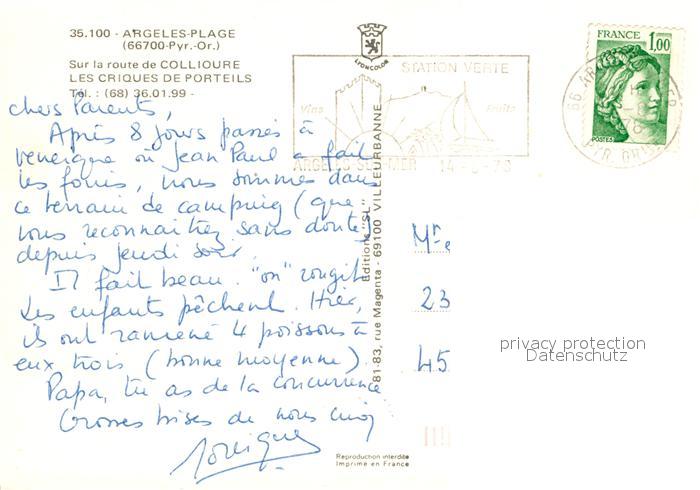 35.100 - ARGELES-PLAGE
(66700-Pyr.-Or.)
Sur la route de COLLIOURE
LES CRIQUES DE PORTEILS
Tél. : (68) 36.01.99 -
LYONCOLOR
STATION VERTE
Vins
Fruits
ARGELES-SUR-MER 14-8-78
FRANCE
1,00
POSTES
chers Parents,
Après 8 jours passés à
où Jean Paul a fait
les foins, nous sommes dans
ce terrain de camping (que
vous reconnaitrez sans doute)
depuis jeudi soir.
Il fait beau. "on" rougit.
Les enfants pêchent. Hier,
ils ont ramené 4 poissons à
eux trois (bonne moyenne).
Papa, tu as de la concurrence
Grosses bises de nous cinq
Editions "SL"
81-83, rue Magenta - 69100 VILLEURBANNE
Mr e
23
45
privacy protection
Datenschutz
Reproduction interdite
Imprimé en France